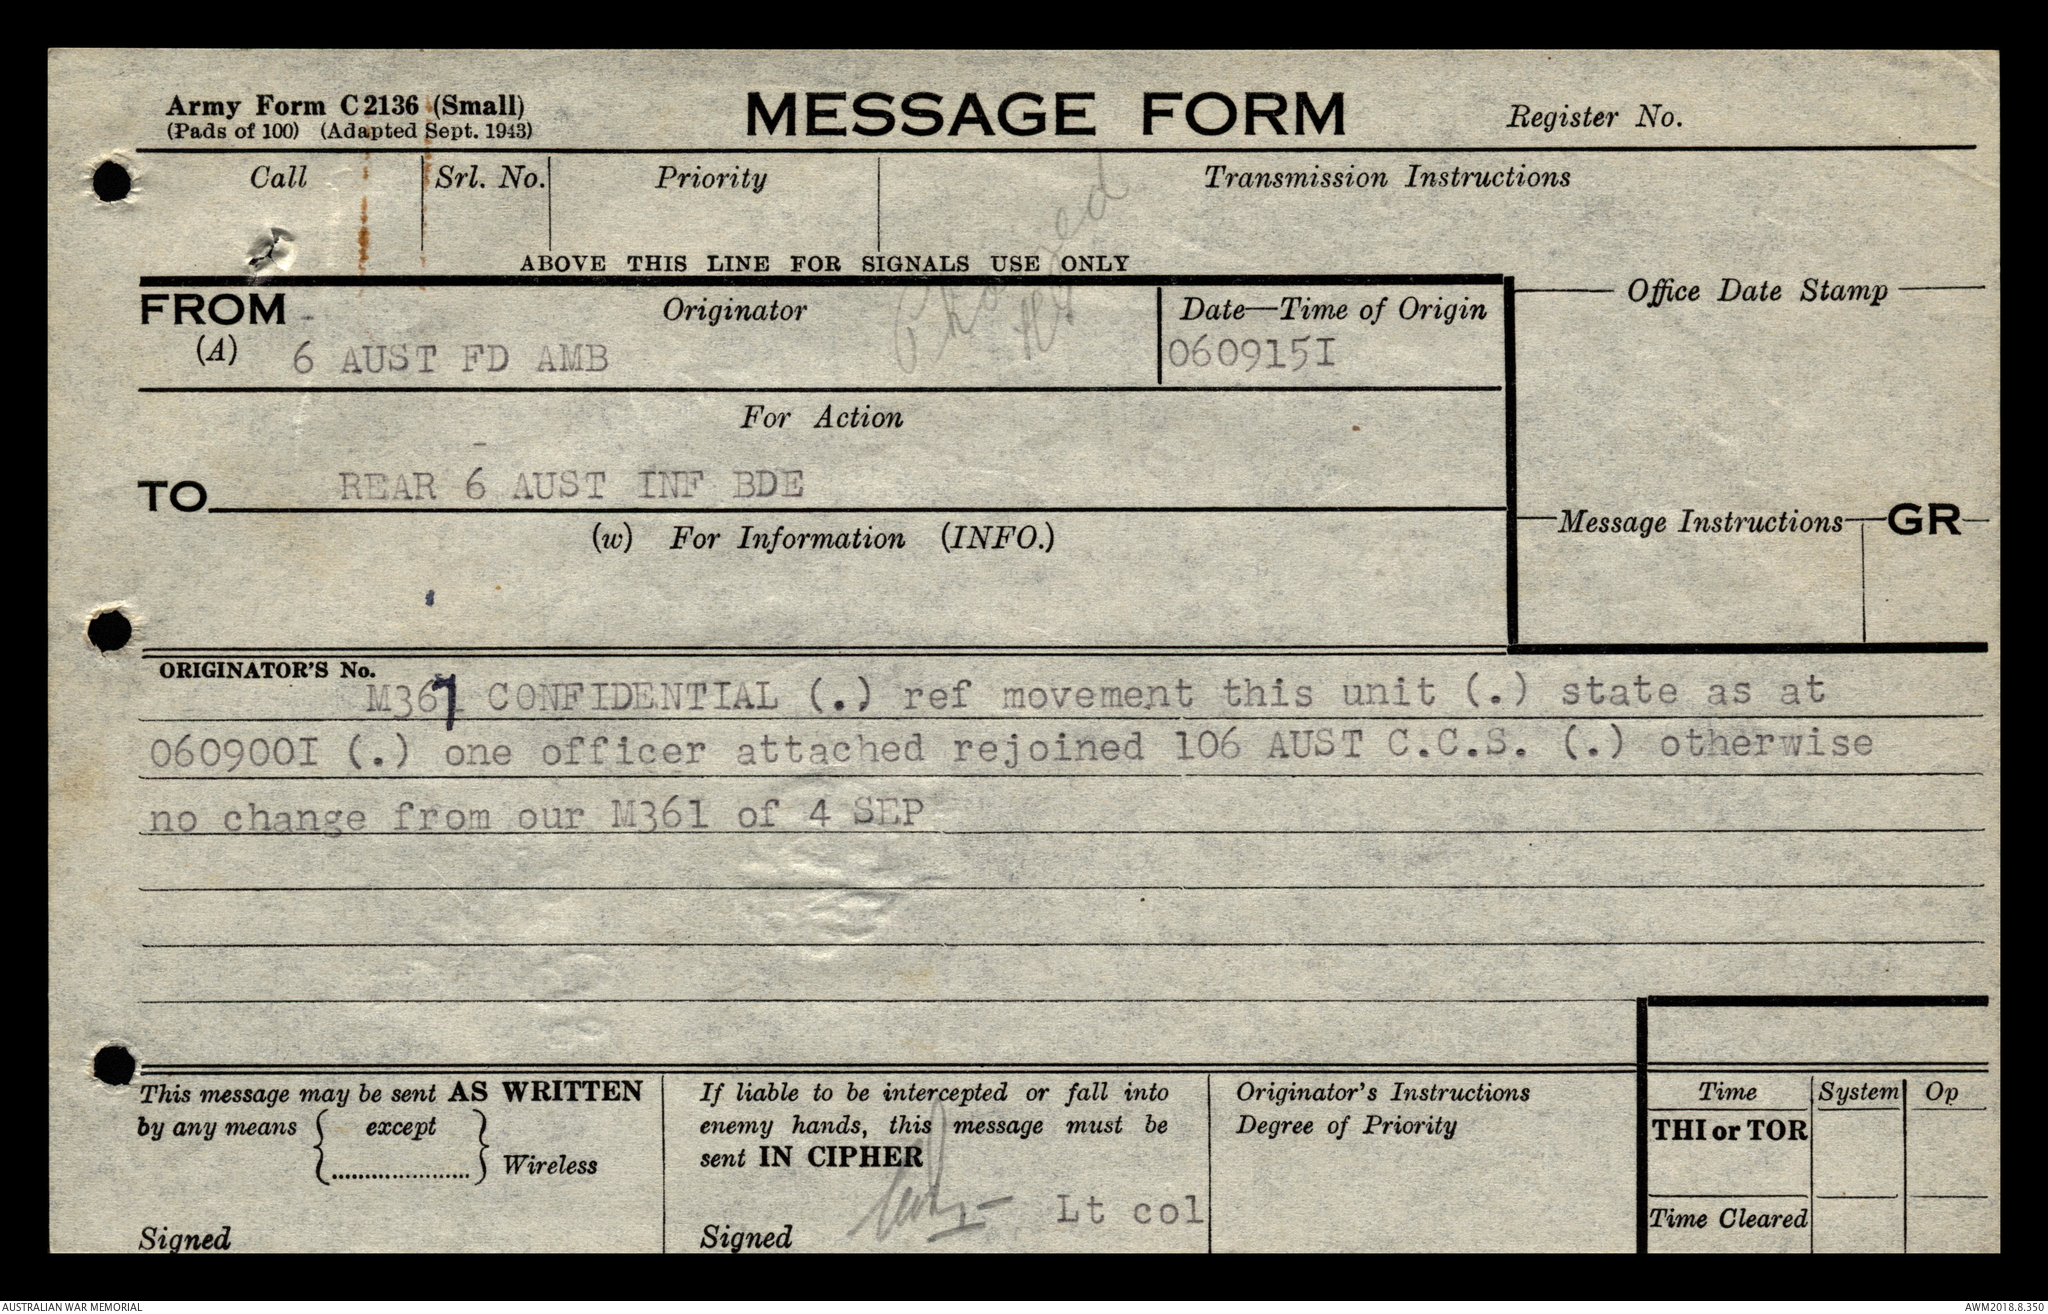 Army Form C2136 (Small)
(Pads of 100) (Adapted Sept. 1943)
MESSAGE FORM
Register No.
Call
Srl. No.
Priority
Transmission Instructions
ABOVE THIS LINE FOR SIGNALS USE ONLY
FROM
(A)
Originator
6 AUST FD AMB
Phoned
Date—Time of Origin
060915I
Office Date Stamp
For Action
TO
REAR 6 AUST INF BDE
(w) For Information (INFO.)
Message Instructions
GR
ORIGINATOR'S No.
M367 CONFIDENTIAL (.) ref movement this unit (.) state as at
060900I (.) one officer attached rejoined 106 AUST C.C.S. (.) otherwise
no change from our M361 of 4 SEP
This message may be sent AS WRITTEN
by any means { except
.....................} Wireless
Signed
If liable to be intercepted or fall into
enemy hands, this message must be
sent IN CIPHER
Lt col
Signed
Originator's Instructions
Degree of Priority
Time
System
Op
THI or TOR
Time Cleared
AUSTRALIAN WAR MEMORIAL
AWM2018.8.350